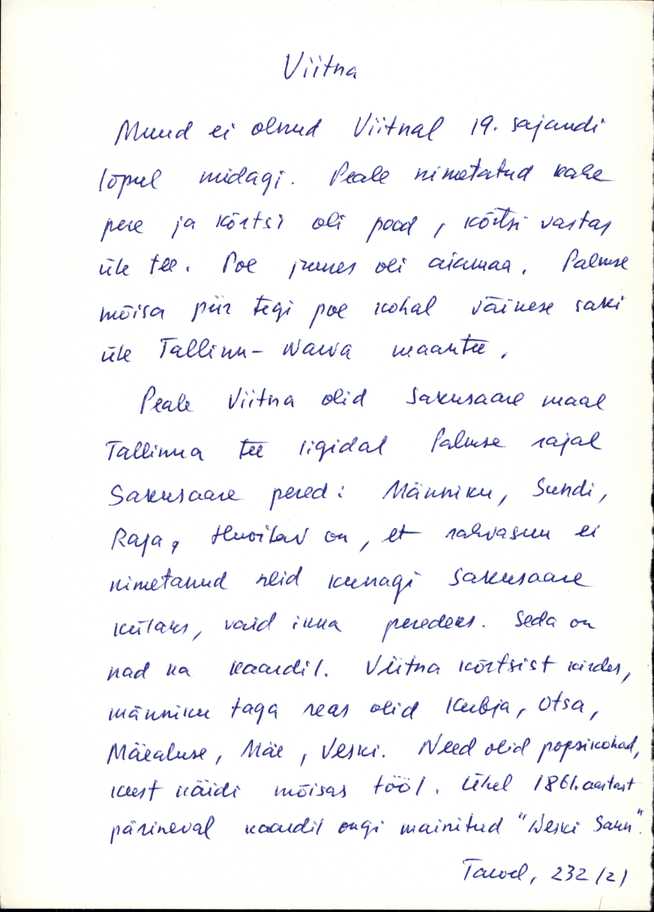 Viitna
Muud ei olnud Viitnal 19. sajandi
lõpul midagi. Peale nimetatud kahe
pere ja kõrtsi oli pood, kõrtsi vastas
üle tee. Poe juures oli aiamaa. Palmse
mõisa piir tegi poe kohal väikese saki
üle Tallinn-Narva maantee.
Peale Viitna olid Sakusaare maal
Tallinna tee ligidal Palmse rajal
Sakusaare pered: Männiku, Sundi,
Raja, Huvitav on, et rahvasuu ei
nimetanud neid kunagi Sakusaare
külaks, vaid ikka peredeks. Seda on
nad ka kaardil. Viitna kõrtsist kirdes,
männiku taga reas olid Kubja, Otsa,
Mäealuse, Mäe, Veski. Need olid popsikohad,
kust käidi mõisas tööl. Ühel 1861. aastast
pärineval kaardil ongi mainitud "Weski Saun".
232/2)